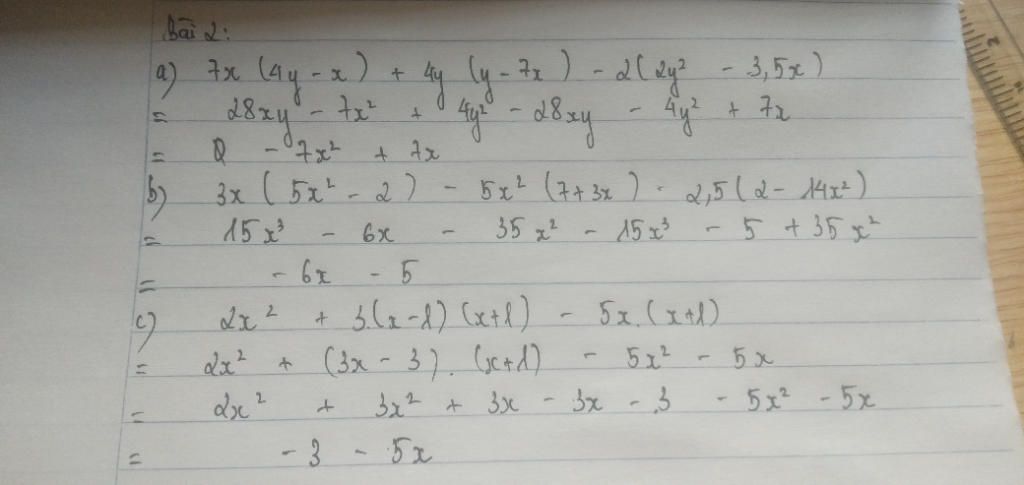 Bài 2:
a) 7x (4y - x) + 4y (y - 7x) - 2(2y² - 3,5x)
= 28xy - 7x² + 4y² - 28xy - 4y² + 7x
= 0 - 7x² + 7x
b) 3x ( 5x² - 2 ) - 5x² (7+3x) - 2,5(2 - 14x²)
= 15x³ - 6x - 35x² - 15x³ - 5 + 35x²
= - 6x - 5
c) 2x² + 3.(x-1) (x+1) - 5x.(x+1)
= 2x² + (3x - 3). (x+1) - 5x² - 5x
= 2x² + 3x² + 3x - 3x - 3 - 5x² - 5x
= - 3 - 5x